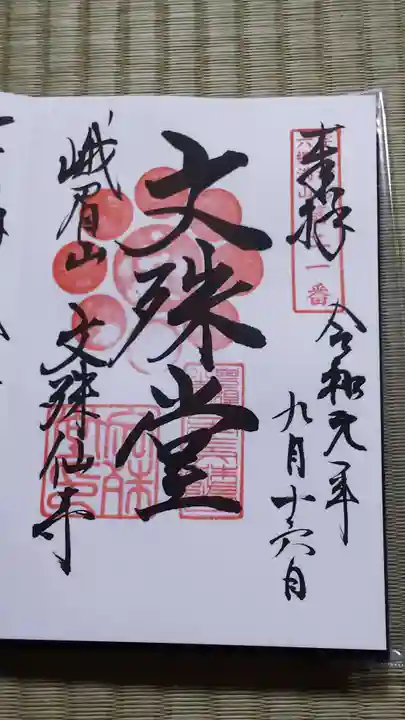 奉拝
令和元年
九月十六日
文殊堂
峨眉山
文殊仙寺